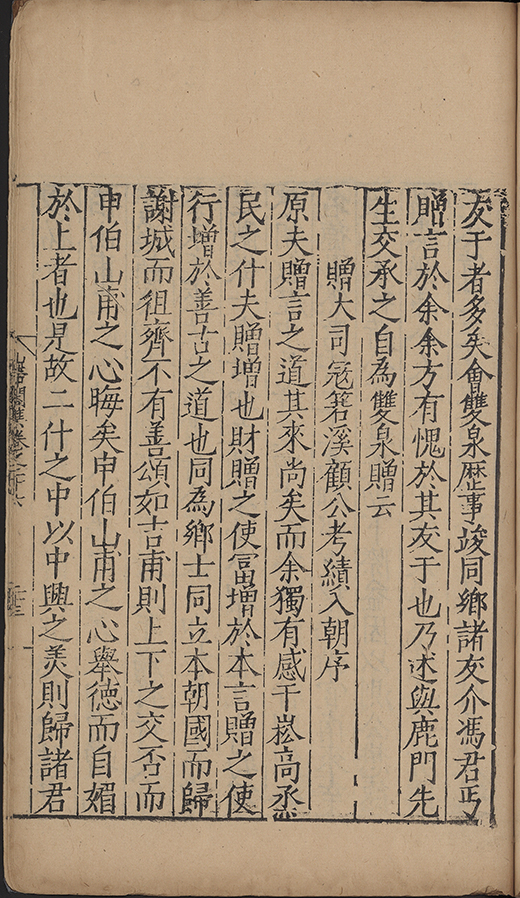 友于者多矣會雙泉歷事竣同鄉諸友介馮君丐
贈言於余余方有愧於其友于也乃述與鹿門先
生交承之自為雙泉贈云
贈大司寇箬溪顧公考績入朝序
原夫贈言之道其來尚矣而余獨有感于崧高烝
民之什夫贈增也財贈之使富增於本言贈之使
行增於善古之道也同為鄉士同立本朝國而歸
謝城而徂齊不有善頌如吉甫則上下之交否而
申伯山甫之心晦矣申伯山甫之心舉德而自媚
於上者也是故二什之中以中興之美則歸諸君